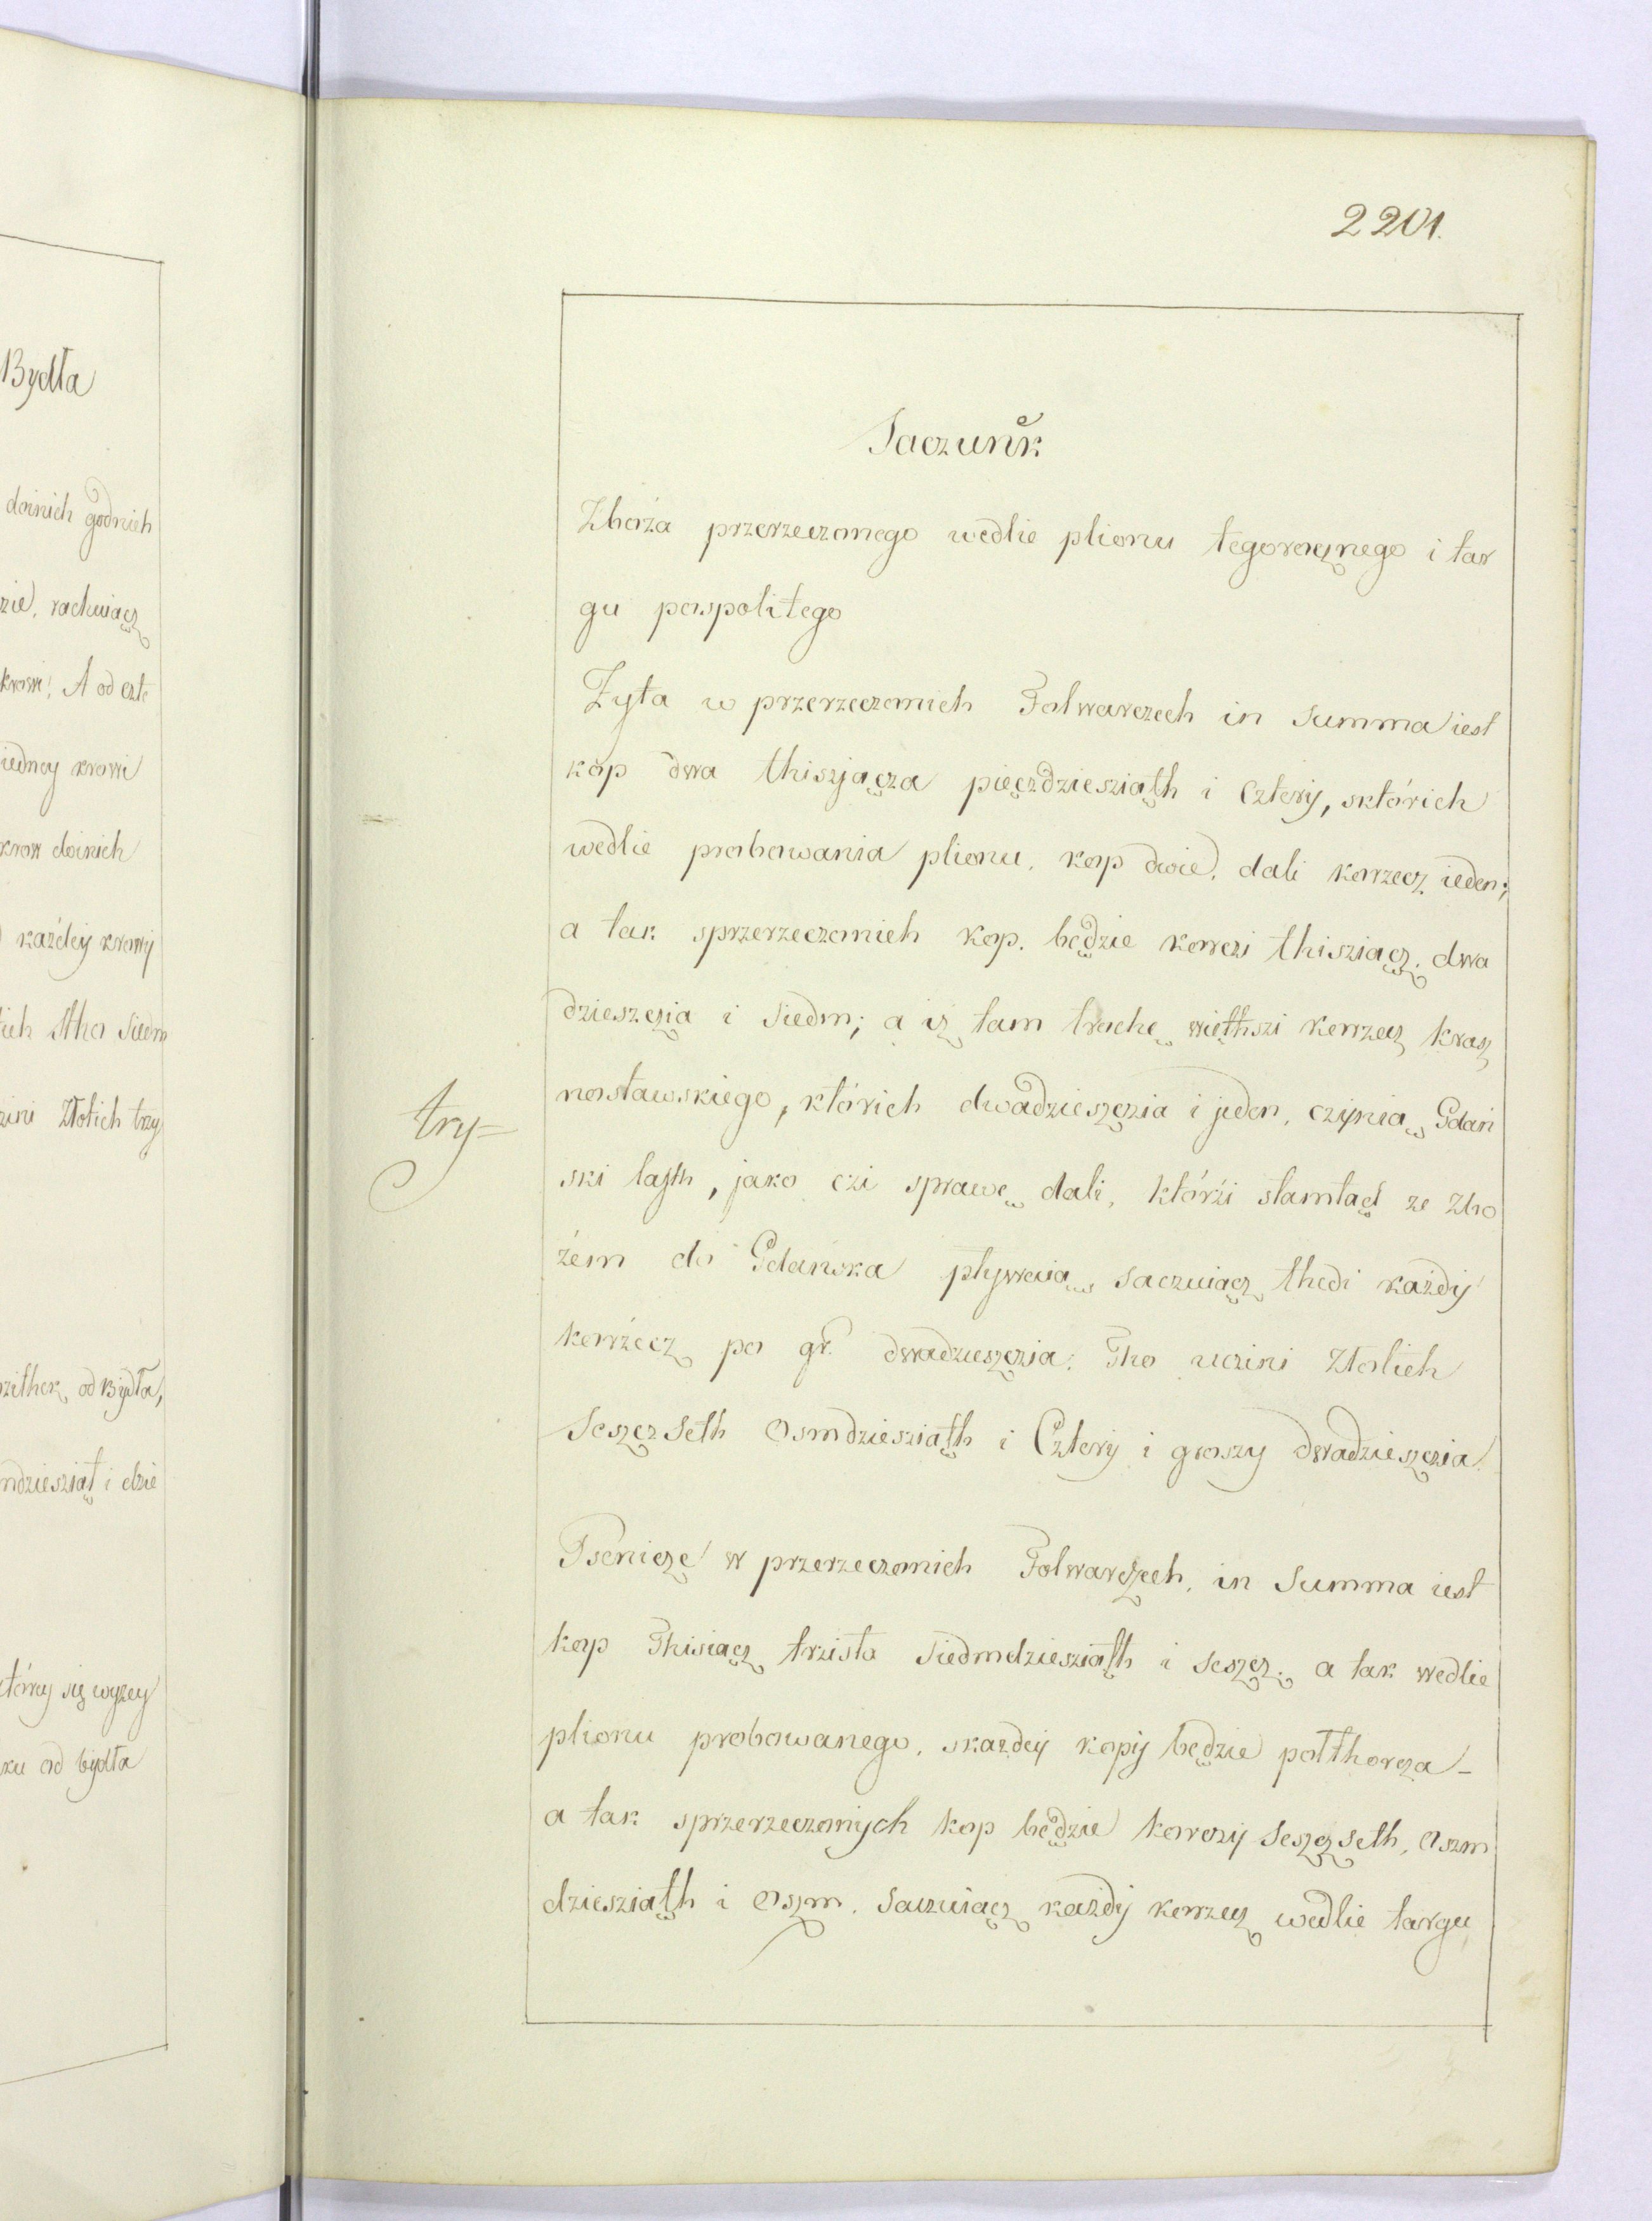 Bydła
doinich godnich
zie, rachuiącz
krowi; A od czte
iedney krowi
krow doinich
każdey krowy
ich Stho Siedm
zini Złotich trzy
zithek od Bydła,
mdziesziąt i dzie
tórey się wyzey
ku od bydła
2201.
Saczunek
Zboża przerzeczonego wedlie plionu tegorocznego i tar
gu pospolitego
Żyta w przerzeczonich Folwarczech in Summa iest
kop dwa thiszącza pięczdziesziąth i Cztery, sktórich
wedlie probowania plionu, kop dwie, dali korzecz ieden;
a tak sprzerzeczonich kop. będzie korczi thisziącz, dwa
dzieszczia i Siedm; a iz tam trochę więthszi korzecz krasz
nostawskiego, którich dwadzieszczia i jeden, czynią Gdań
try=
ski łasth, jako czi sprawę dali, którźi stamtąd ze zbo
żem do Gdańska pływaią, Saczuiącz thedi każdy
korżecz po gr. dwadzieszczia. Tho uczini Złotich
Seszcz Seth Osmdziesziąth i Cztery i groszy dwadzieszczia.
Psenicze w przerzeczonich Folwarczech, in Summa iest
kop Thisiącz trzista Siedmdziesziąth i seszcz. a tak wedlie
plionu probowanego, skażdey kopy będzie połthorcza –
a tak sprzerzeczonych kop będzie korczy Seszcz Seth, Oszm
dziesziąth i Oszm. Saczuiącz każdy korzecz wedlie targu